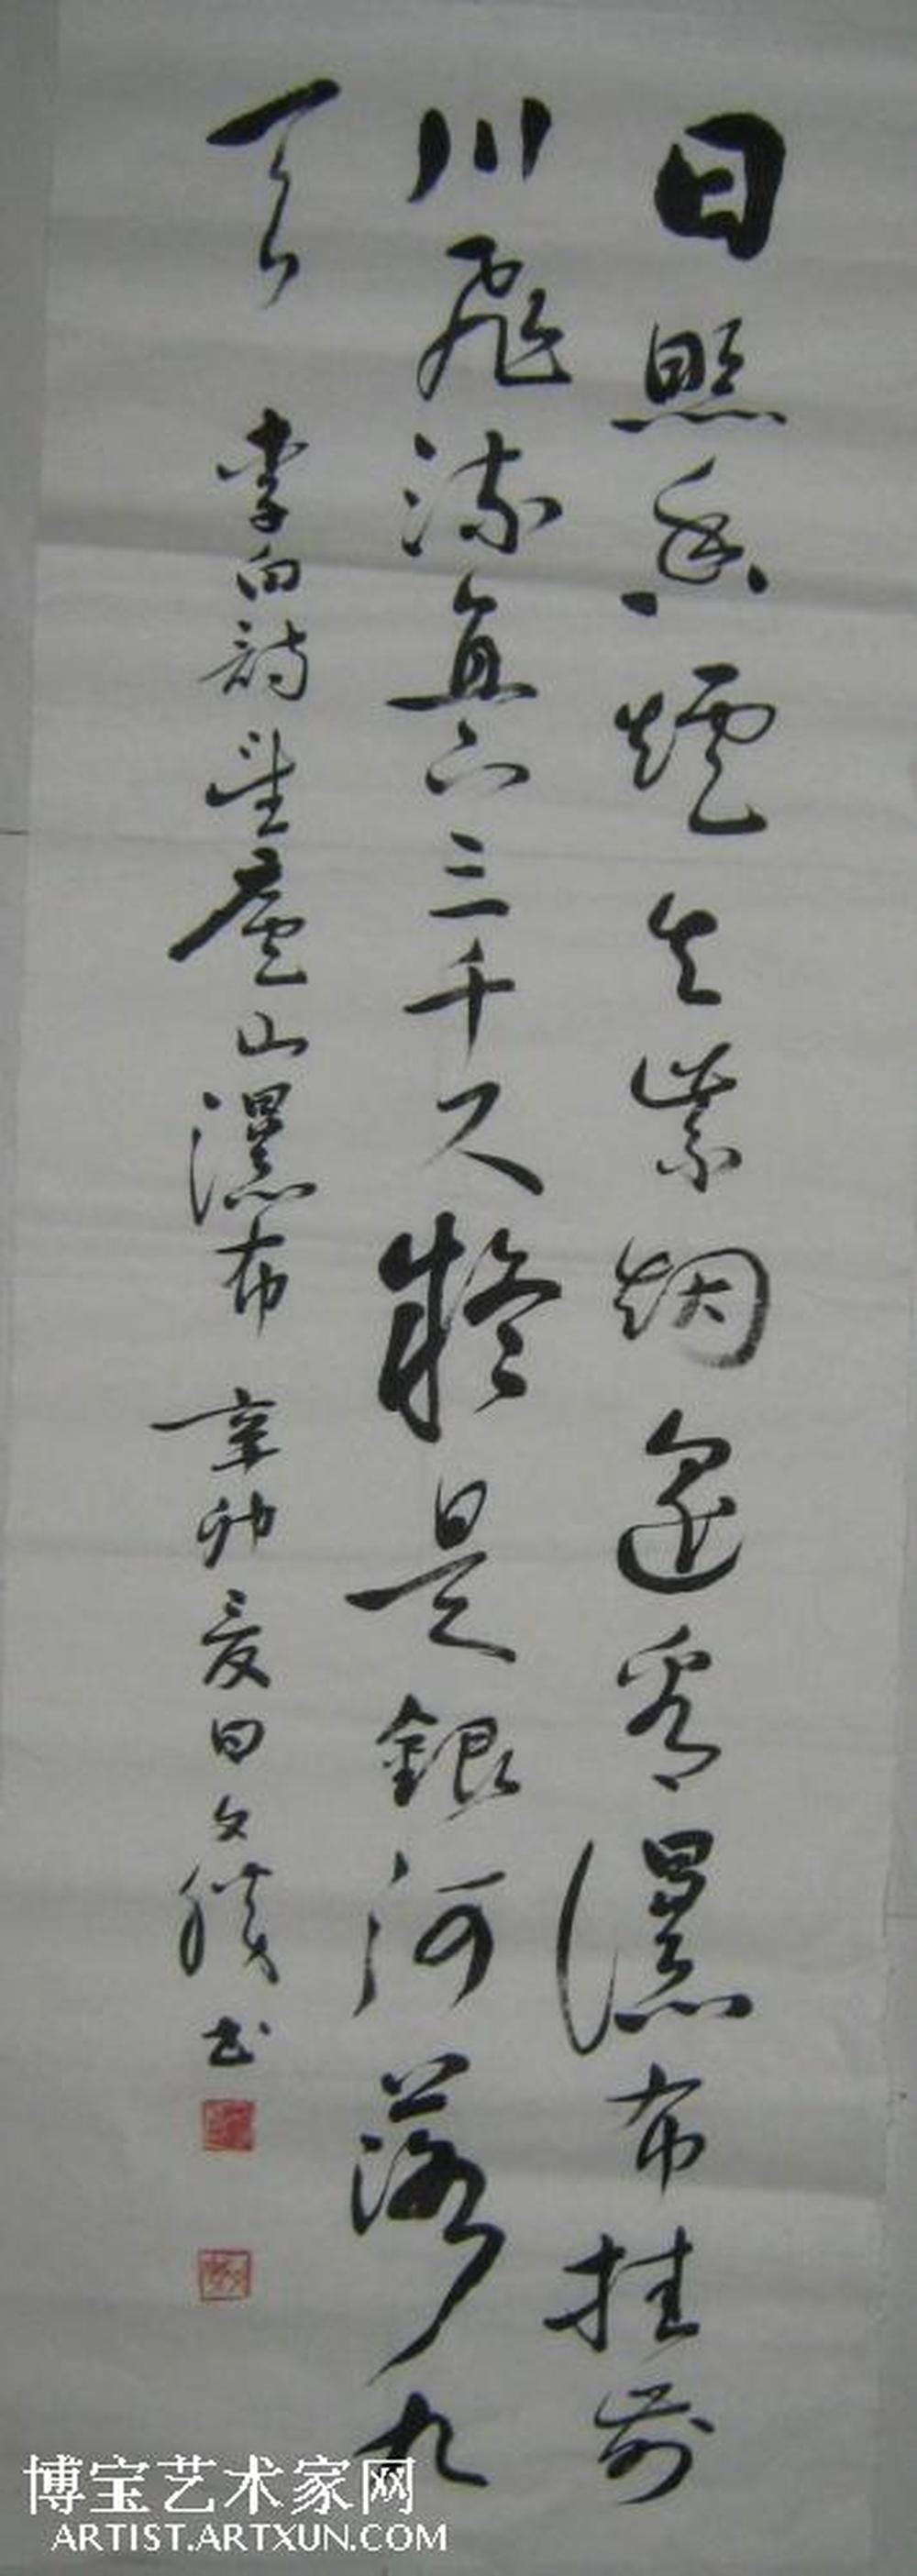 日照香爐生紫烟遥看瀑布挂前
川飛流直下三千尺疑是銀河落九
天 李白詩望廬山瀑布 辛卯夏日文勝书
博宝艺术家网
ARTIST.ARTXUN.COM